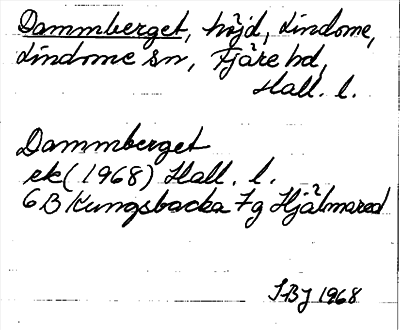 Dammberget, höjd, Lindome,
Lindome sn, Fjäre hd,
Hall. l.
Dammberget
ek (1968) Hall. l.
6B Kungsbacka 7g Hjälmared
SBJ 1968